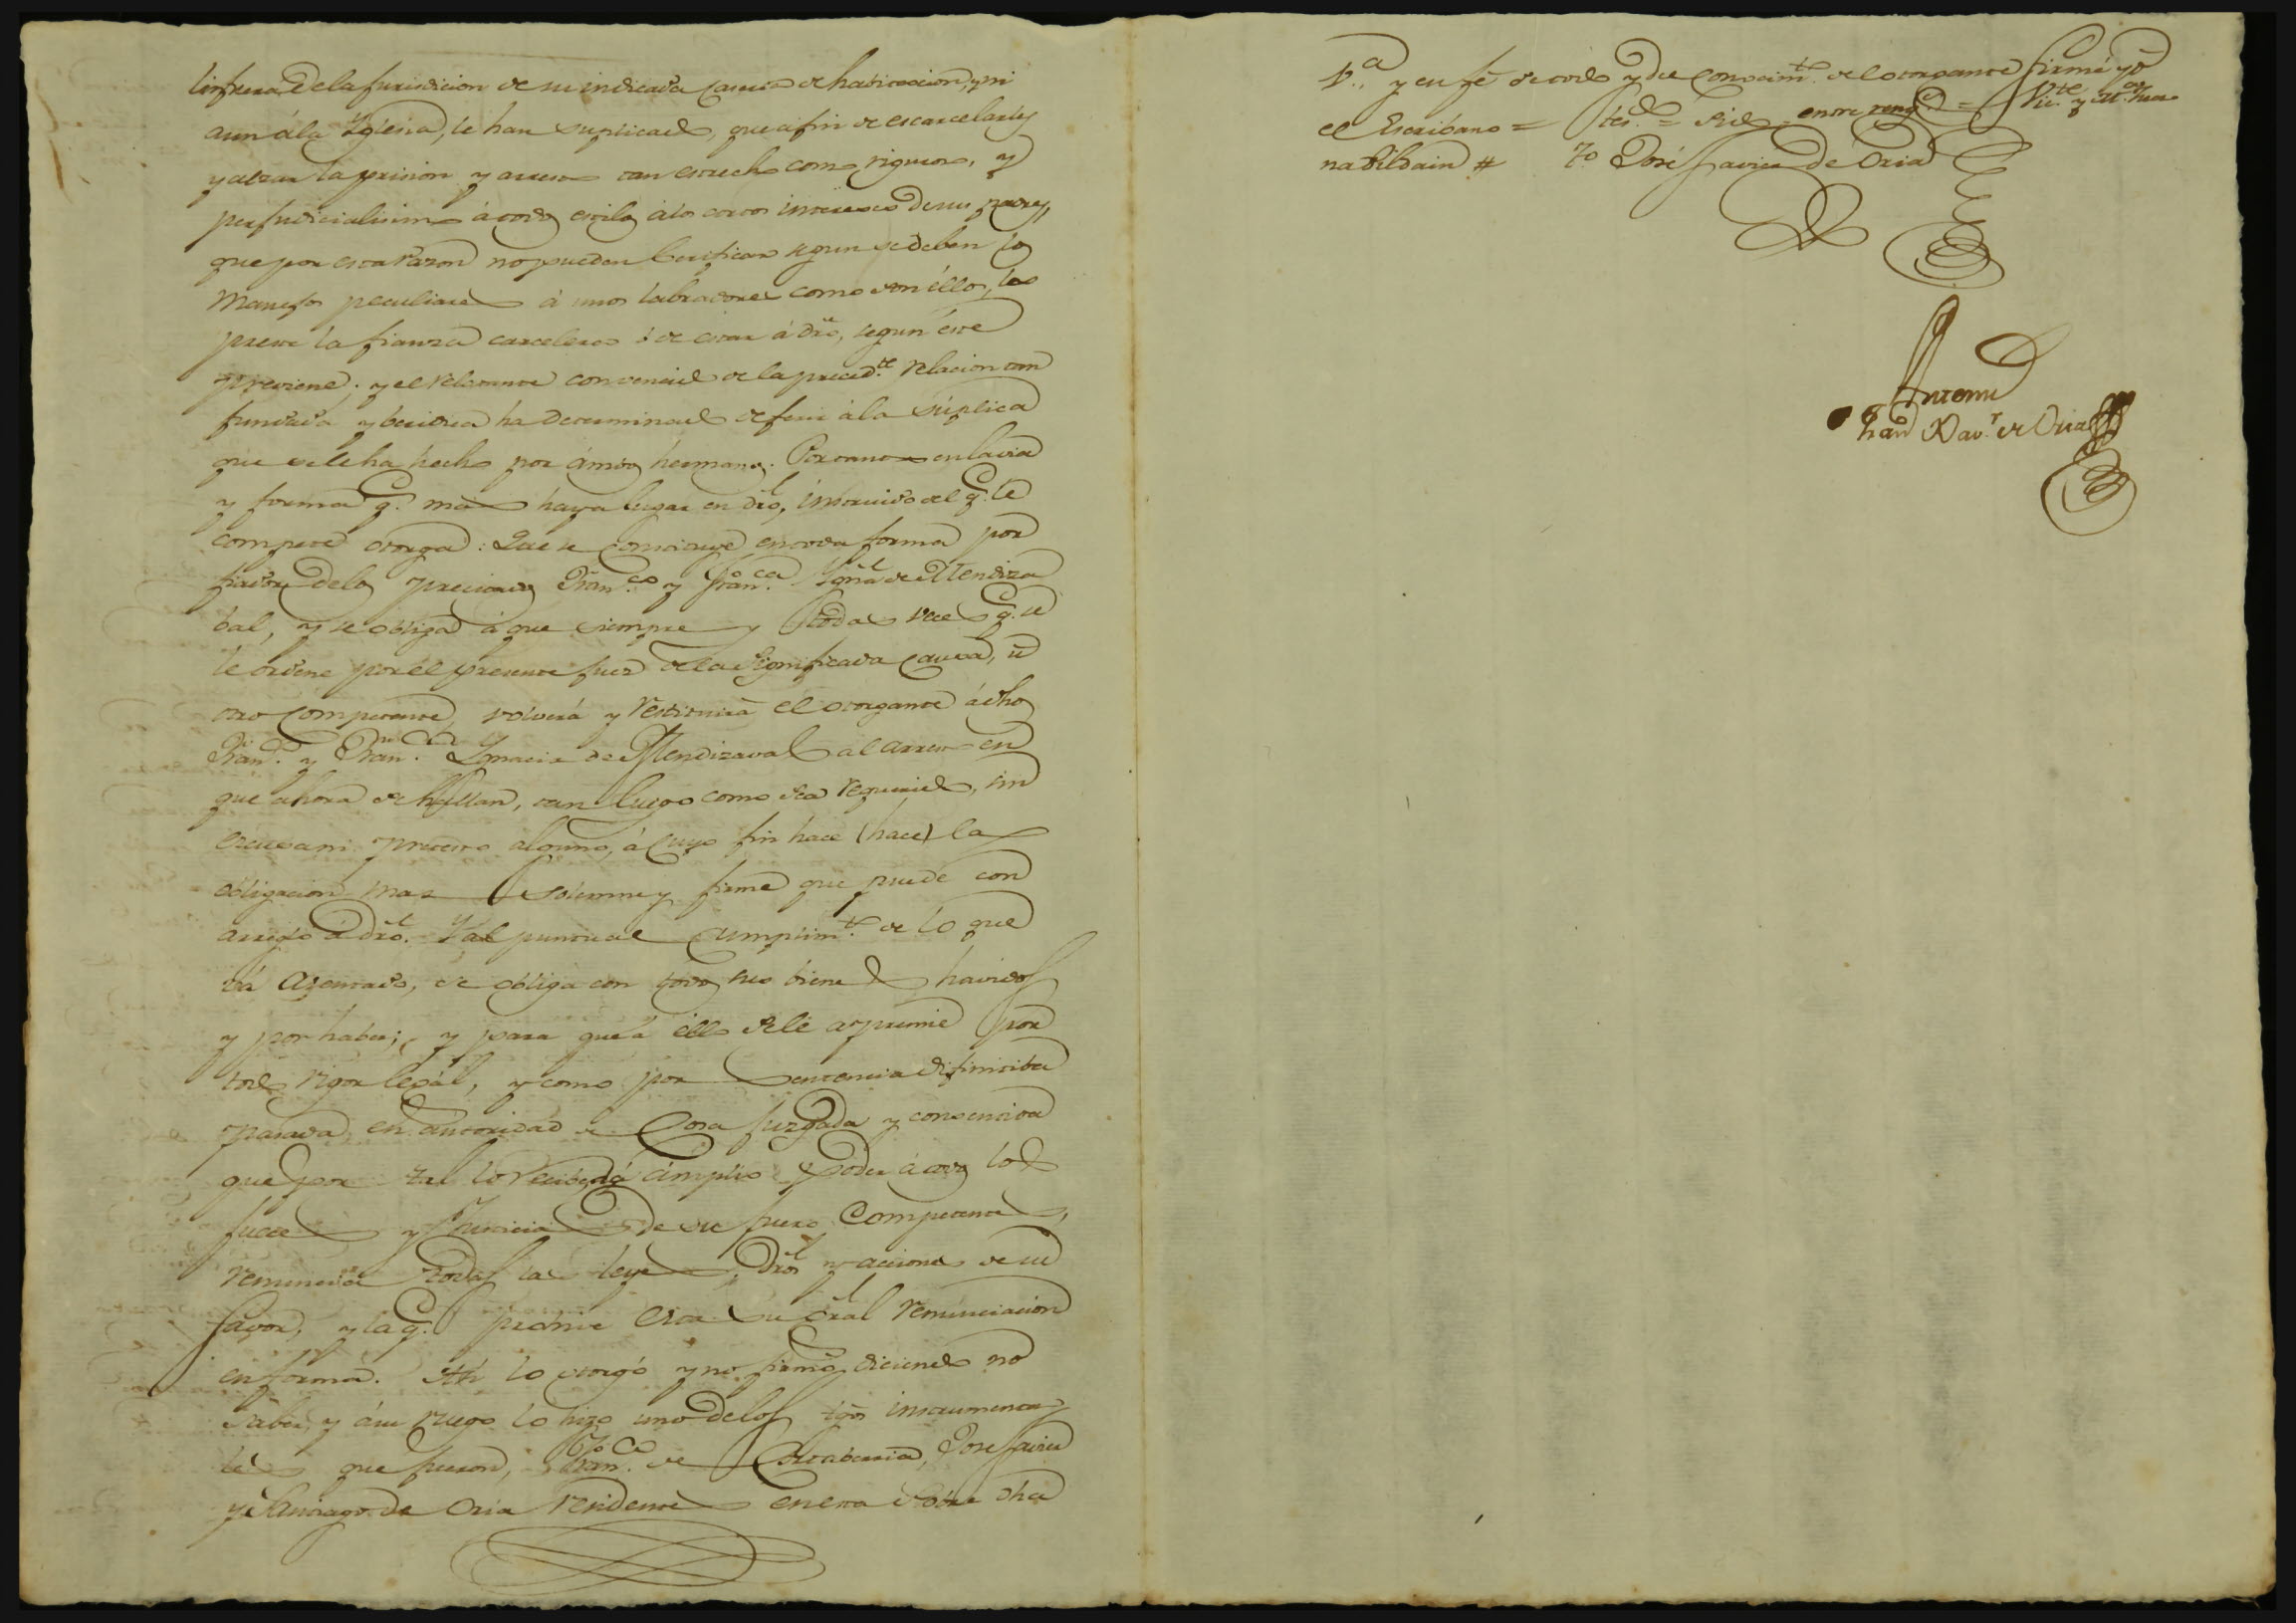 fuera de la jurisdicion de su indicada casa de habitacion, y ni
aun á la Yglesia, le han suplicado, que á fin de escarcelarles
y alzar la prision y arresto tan estrecho como riguroso, y
perjudicialisimo á todos ellos á los cortos intereses de sus padres,
que por esta razon no pueden berificar segun se deben los
manejos peculiares á unos labradores como son éllos, les
preste la fianza carcelero ó de estar á dro, segun este
previene; y el relatante convencido de la preced.te relacion tan
fundada y beridica ha determinado deferir á la súplica
que se le ha hecho por ámbos hermanos. Por tanto en la via
y forma q.e mas haya lugar en dro, instruido del q.e le
compete otorga: Que se constituye en toda forma por
fiador de los precitados Fran.co y Fran.ca Ygn.a de Mendiza
bal, y se obliga á que siempre y todas veces q.e se
le ordene por el presente juez de la significada causa, ú
otro competente, volverá y restituirá el otorgante á dhos
Fran.co y Fran.ca Ygnacia de Mendizaval al arresto en
que ahora se hallan, tan luego como sea requerido, sin
escusa ni pretesto alguno, á cuyo fin hace (hace) la
obligacion mas solemne y firme que puede con
arreglo á dro. Y al puntual cumplim.to de lo que
vá asentado, se obliga con todos sus bienes havidos
y por haber; y para que á éllo se le apremie por
todo rigor legál, y como por sentencia difinitiba
pasada en autoridad de cosa juzgada y consentida
que por tal lo recibe, dá ámplio poder á todos los
jueces y Justicias de su fuero competentes,
renuncia todas las leyes, dros y acciones de su
favor, y la q.e prohive esta su gral renunciacion
en forma. Asi lo otorgó y no firmó, diciendo no
saber, y á su ruego lo hizo uno delos tgos instrumenta
les que fueron, Fran.co de Olctaberria, Jose Javier
y Santiago de Oria residentes en esta sobre dha
V.a, y en fé de todo y del conocim.to del otorgante firmé yo
el Escribano = tes.do = Sido = entre reng.s = Vic.te y M.a Jua
na Bildain # T.o José Javier de Oria
Antemi
Juan Xav.r de Oria